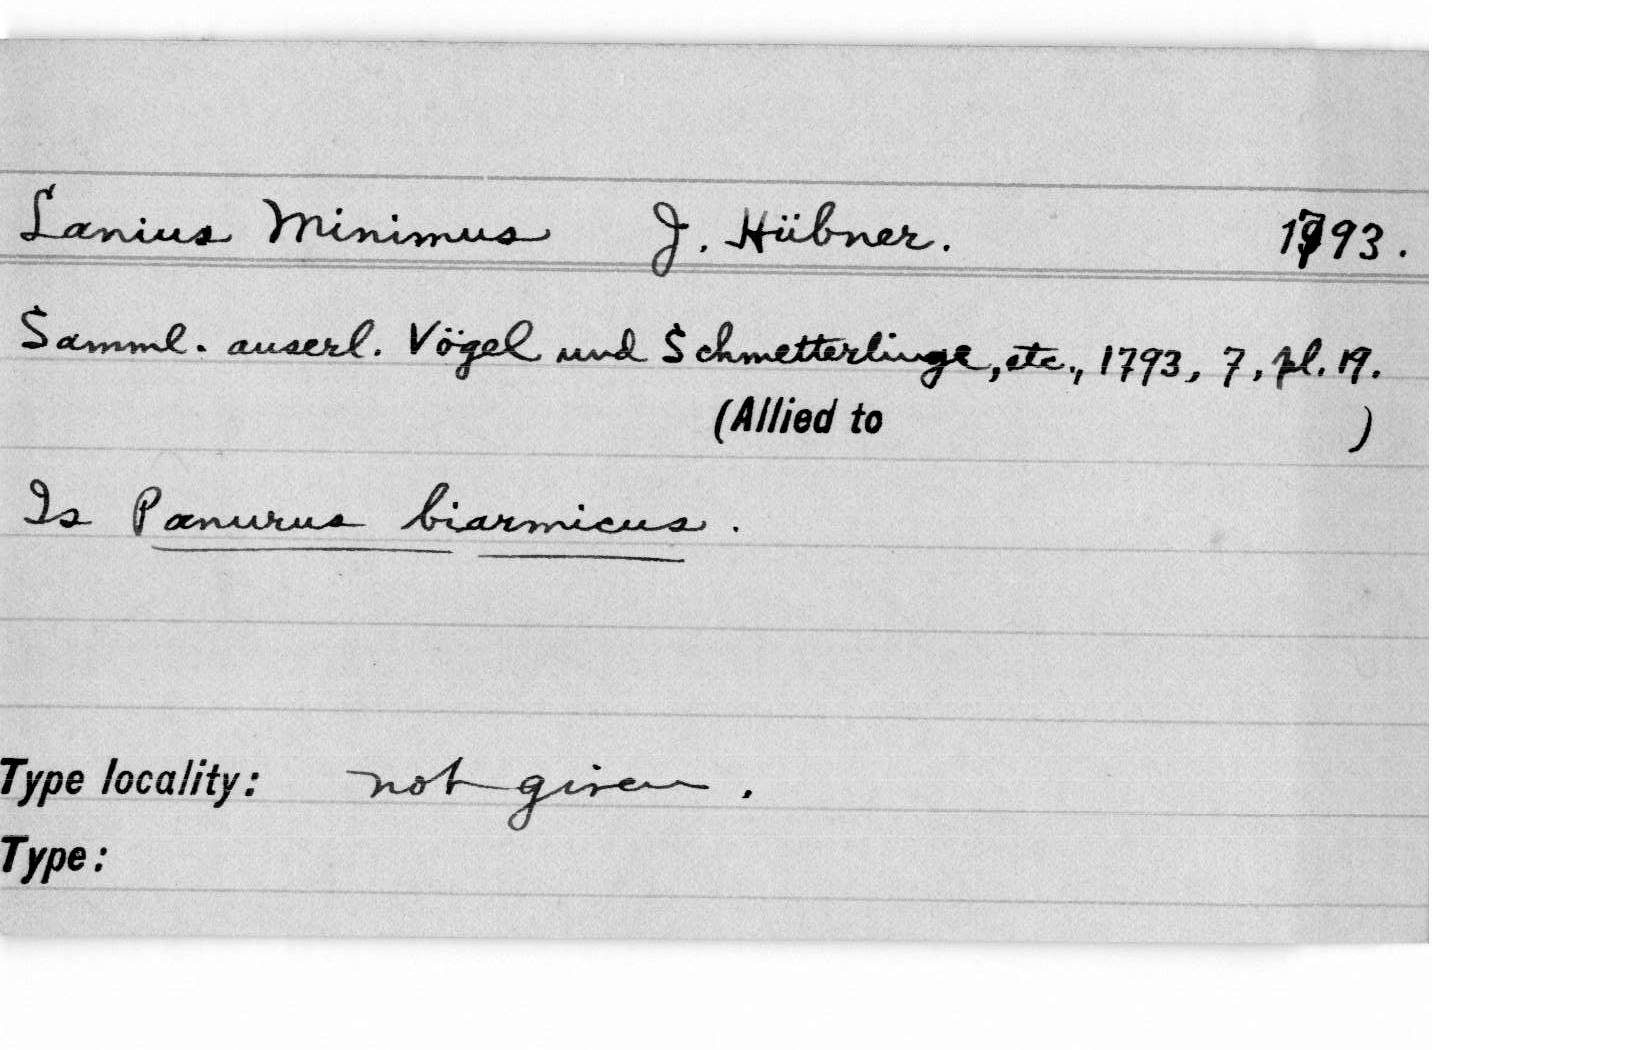 Lanius Minimus J. Hübner. 1793.
Samml. auserl. Vögel und Schmetterlinge, etc., 1793, 7, pl. 19.
(Allied to )
Is Panurus biarmicus.
Type locality: not given.
Type: